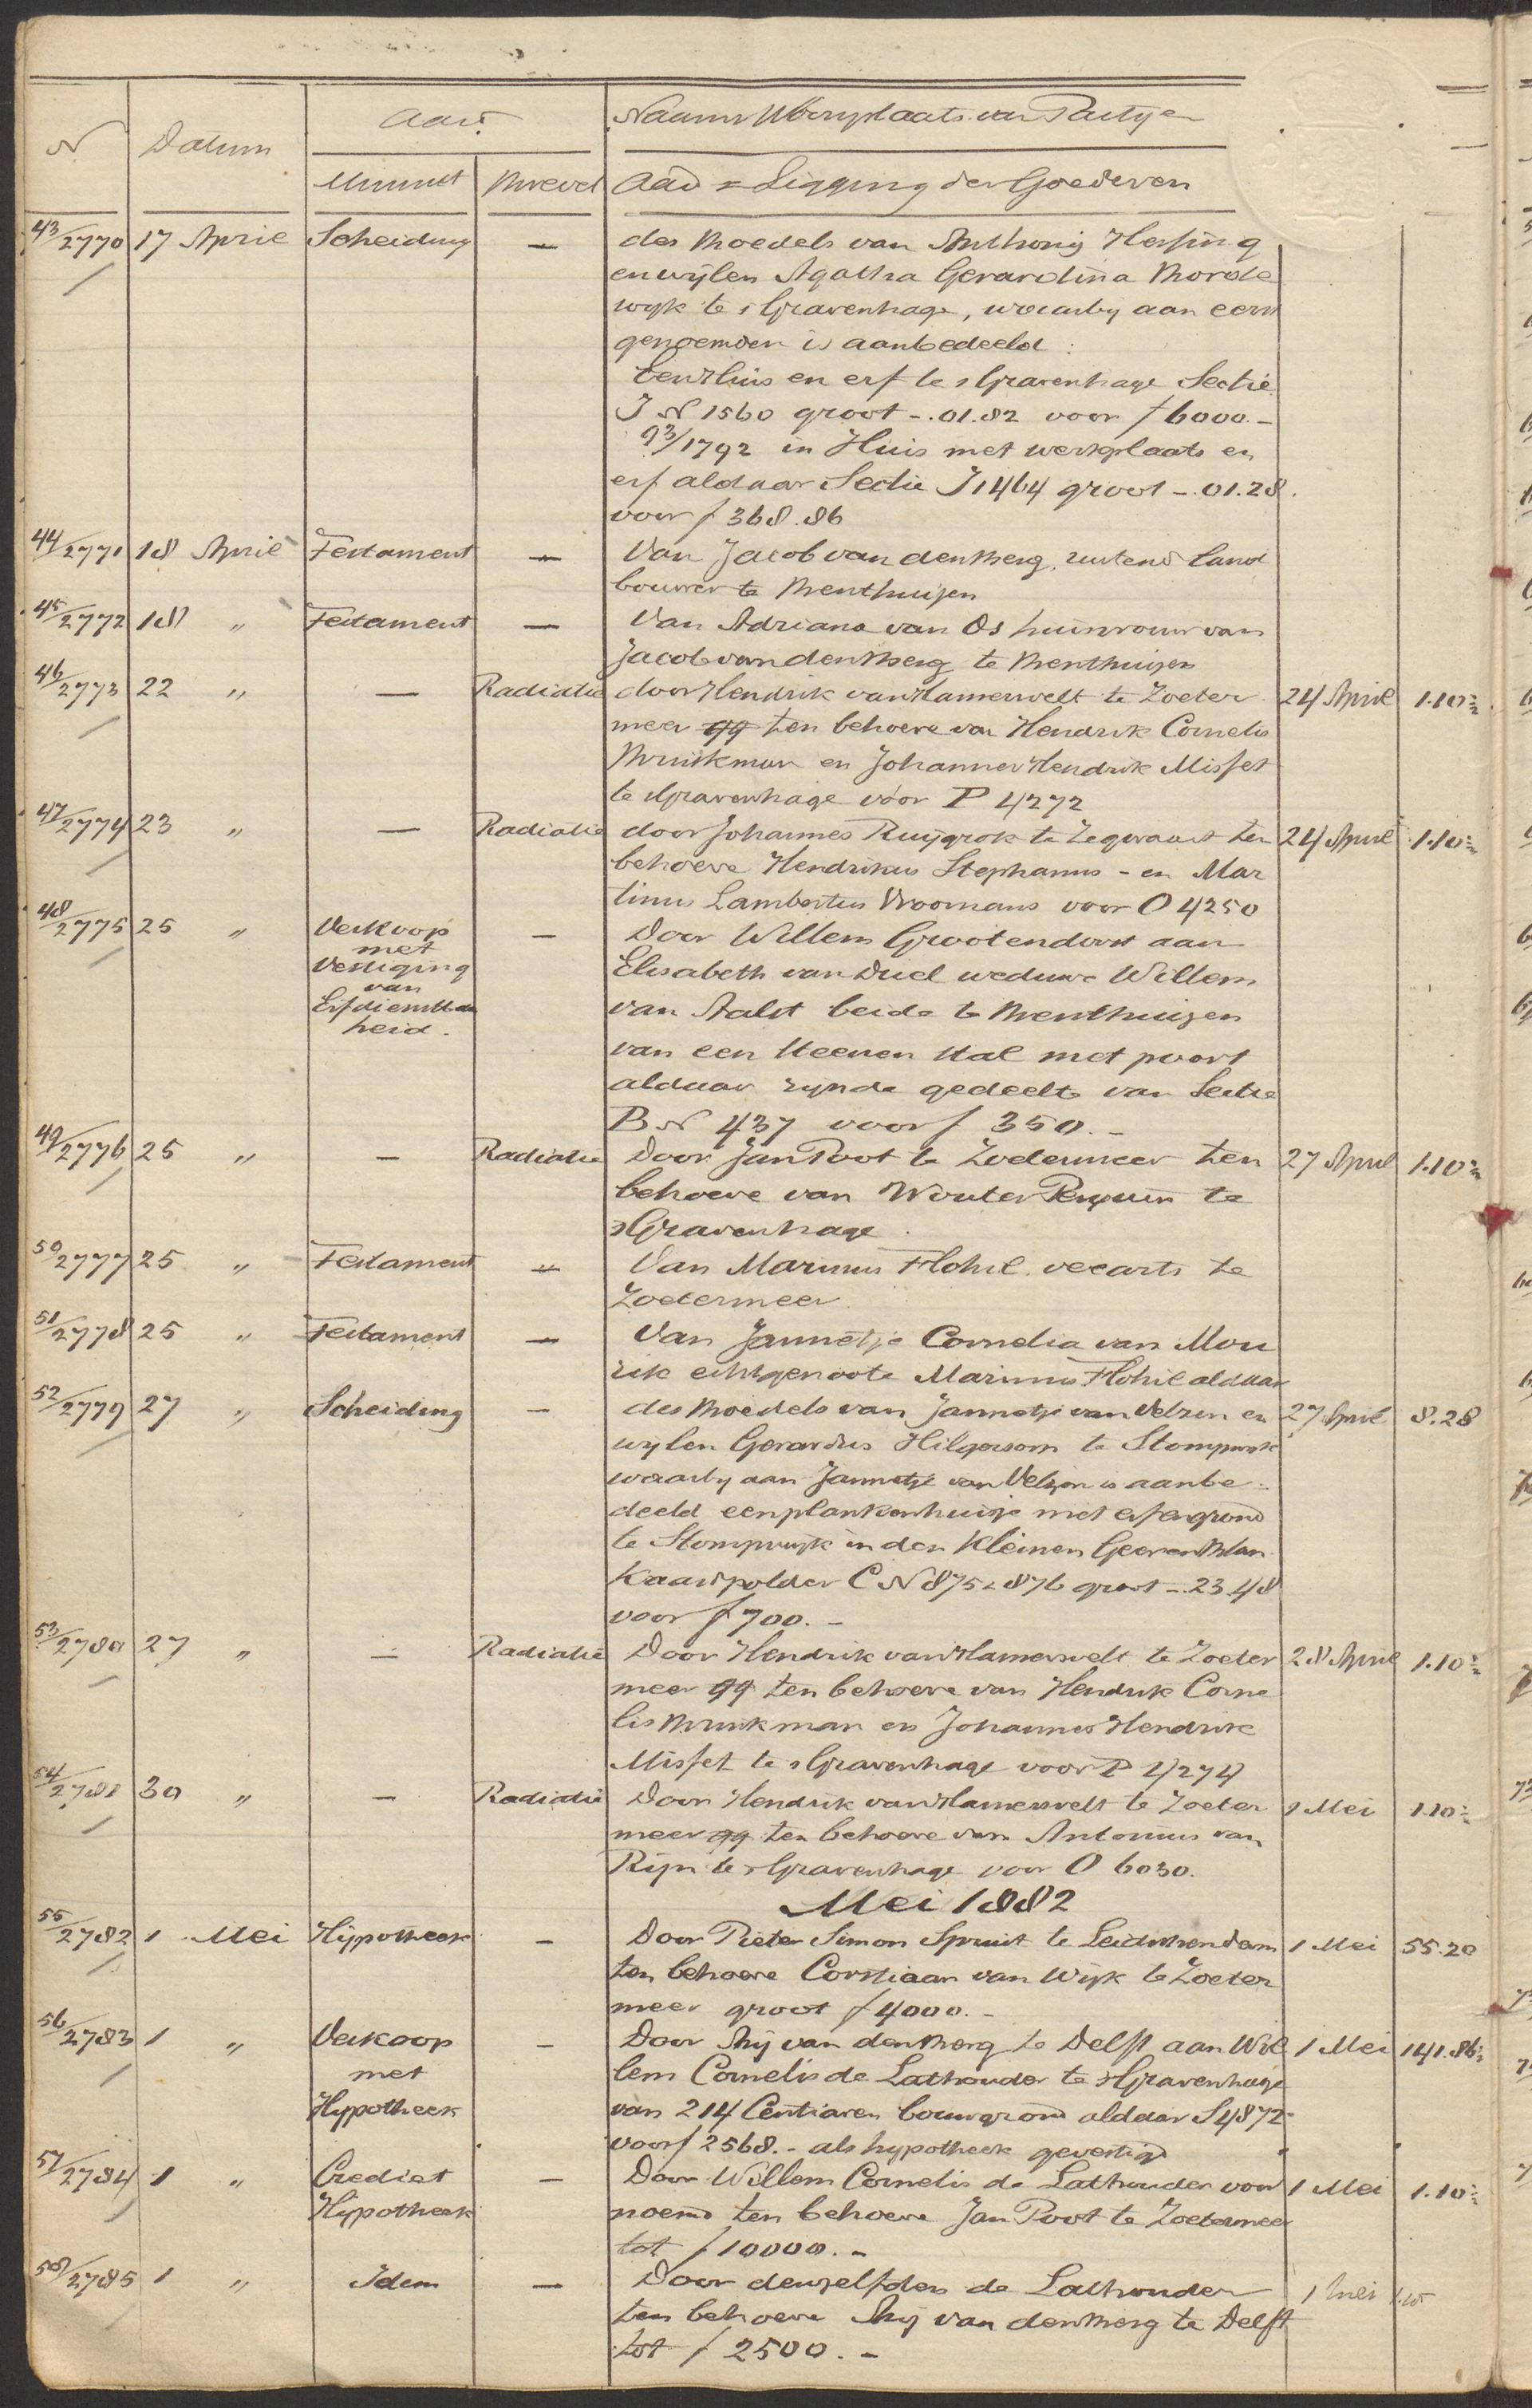 N Datum Aard Naam & Woonplaats van Partyen
Minuut Brevet Aard & Ligging der Goederen
43/2770 17 April Scheiding — des Boedels van Anthonij Hessing
en wijlen Agatha Gerardina Borde
wijk te sGravenhage, waarbij aan eerst
genoemden is aanbedeeld:
Een Huis en erf te sGravenhage Sectie
J N 1560 groot -.01.82 voor f 6000.-
93/1792 in Huis met werkplaats en
erf aldaar Sectie J 1464 groot -.01.28.
voor f 368.86
44/2771 18 April Testament — Van Jacob van den Berg, rustend land
bouwer te Benthuizen
45/2772 18 " Testament — Van Adriana van Os huisvrouw van
Jacob van den Berg te Benthuizen
46/2773 22 " — Radiatie door Hendrik van Hamersvelt te Zoeter 24 April 1.10
meer qq ten behoeve van Hendrik Cornelis
Bruikman en Johannes Hendrik Misset
te sGravenhage voor P 4272
47/2774 23 " — Radiatie door Johannes Ruijgrok te Zegwaart ten 24 April 1.10
behoeve Hendrikus Stephanus - en Mar
tinus Lambertus Vroomans voor O 4250
48/2775 25 " Verkoop — Door Willem Grootendorst aan
met
Vestiging Elisabeth van Driel weduwe Willem
van
Erfdienstbaar van Aalst beide te Benthuizen
heid.
van een steenen stal met poort
aldaar zijnde gedeelte van Sectie
B N 437 voor f 350.-
49/2776 25 " — Radiatie Door Jan Poot te Zoetermeer ten 27 April 1.10
behoeve van Wouter te
sGravenhage.
50/2777 25 " Testament — Van Marinus Flohil veearts te
Zoetermeer
51/2778 25 " Testament — Van Jannetje Cornelia van Mou
rik echtgenoote Marinus Flohil aldaar
52/2779 27 " Scheiding — des Boedels van Jannetje van Velzen en 27 April 8.28
wijlen Gerardus Hilgersom te Stompwijk
waarbij aan Jannetje van Velzen is aanbe-
deeld een plankenhuisje met erf en grond
te Stompwijk in den Kleinen Geer en Blan
kaardpolder C N 875 & 876 groot -.23.48
voor f 700.-
53/2780 27 " — Radiatie Door Hendrik van Hamersvelt te Zoeter 28 April 1.10
meer qq ten behoeve van Hendrik Corne
lis Bruikman en Johannes Hendrik
Misset te sGravenhage voor P 4274
54/2781 30 " — Radiatie Door Hendrik van Hamersvelt te Zoeter 1 Mei 1.10
meer qq ten behoeve van Antonius van
Rijn te sGravenhage voor O 6030.
Mei 1882
55/2782 1 Mei Hypotheek — Door Pieter Simon Spruit te Leidschendam 1 Mei 55.20
ten behoeve Corstiaan van Wijk te Zoeter
meer groot f 4000.-
56/2783 1 " Verkoop — Door Arij van den Berg te Delft aan Wil 1 Mei 141.86
met lem Cornelis de Lathouder te sGravenhage
Hypotheek van 214 Centiaren bouwgrond aldaar S 4872
voor f 2568.- als hypotheek gevestigd
57/2784 1 " Crediet — Door Willem Cornelis de Lathouder voor 1 Mei 1.10
Hypotheek noemd ten behoeve Jan Poot te Zoetermeer
tot f 10000.-
58/2785 1 " Idem — Door denzelfden de Lathouder 1 Mei 1.10
ten behoeve Arij van den Berg te Delft
tot f 2500.-